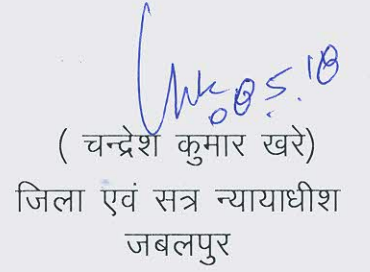 ( चन्द्रेश कुमार खरे)
जिला एवं सत्र न्यायाधीश
जबलपुर